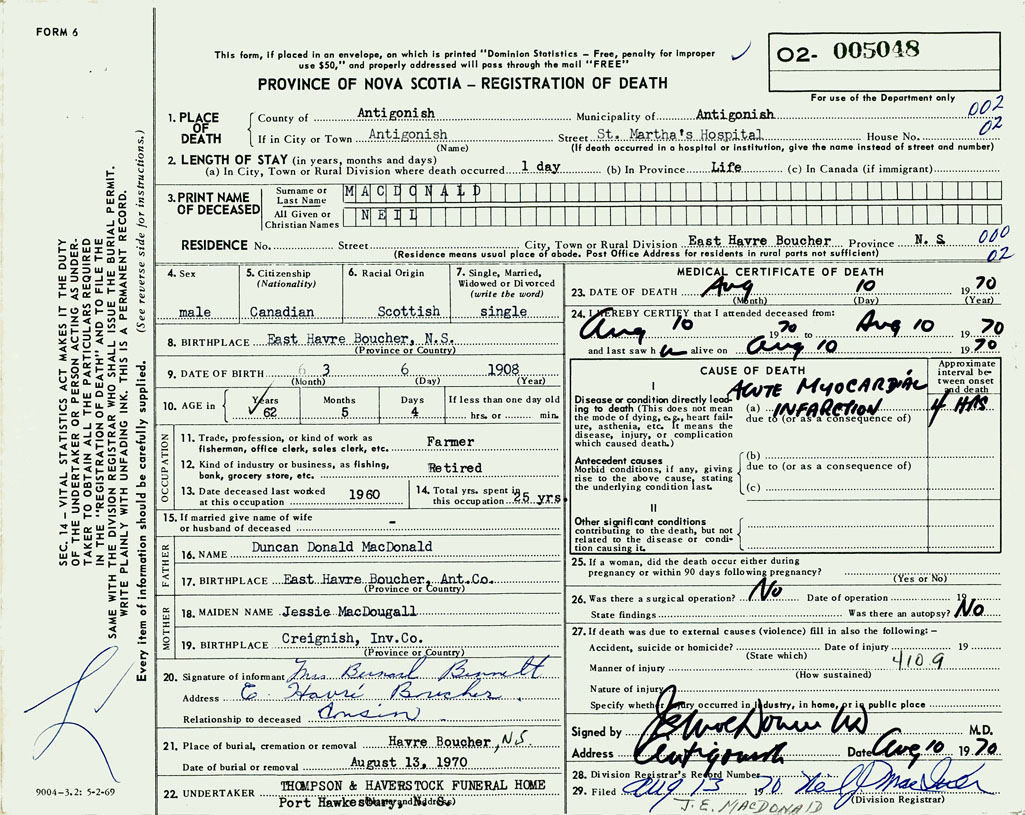 FORM 6
This form, if placed in an envelope, on which is printed "Dominion Statistics – Free, penalty for improper
use $50," and properly addressed will pass through the mail "FREE"
O2- 005048
PROVINCE OF NOVA SCOTIA – REGISTRATION OF DEATH
For use of the Department only
002
02
1. PLACE OF DEATH
County of Antigonish Municipality of Antigonish
If in City or Town Antigonish Street St. Martha's Hospital House No.
(Name) (If death occurred in a hospital or institution, give the name instead of street and number)
2. LENGTH OF STAY (in years, months and days)
(a) In City, Town or Rural Division where death occurred 1 day (b) In Province Life (c) In Canada (if immigrant)
3. PRINT NAME OF DECEASED
Surname or Last Name MACDONALD
All Given or Christian Names NEIL
RESIDENCE No. Street City, Town or Rural Division East Havre Boucher Province N. S.
(Residence means usual place of abode. Post Office Address for residents in rural parts not sufficient)
000
02
4. Sex male
5. Citizenship (Nationality) Canadian
6. Racial Origin Scottish
7. Single, Married, Widowed or Divorced (write the word) single
8. BIRTHPLACE East Havre Boucher, N.S.
(Province or Country)
9. DATE OF BIRTH 3 6 1908
(Month) (Day) (Year)
10. AGE in Years 62 Months 5 Days 4 If less than one day old hrs. or min.
OCCUPATION
11. Trade, profession, or kind of work as fisherman, office clerk, sales clerk, etc. Farmer
12. Kind of industry or business, as fishing, bank, grocery store, etc. Retired
13. Date deceased last worked at this occupation 1960
14. Total yrs. spent in this occupation 25 yrs.
15. If married give name of wife or husband of deceased -
FATHER
16. NAME Duncan Donald MacDonald
17. BIRTHPLACE East Havre Boucher, Ant.Co.
(Province or Country)
MOTHER
18. MAIDEN NAME Jessie MacDougall
19. BIRTHPLACE Creignish, Inv.Co.
(Province or Country)
20. Signature of informant Mrs Bernard Bennett
Address E. Havre Boucher
Relationship to deceased Cousin
21. Place of burial, cremation or removal Havre Boucher, N.S.
Date of burial or removal August 13, 1970
22. UNDERTAKER THOMPSON & HAVERSTOCK FUNERAL HOME
Port Hawkesbury, N. S.
(Name and address)
MEDICAL CERTIFICATE OF DEATH
23. DATE OF DEATH Aug 10 1970
(Month) (Day) (Year)
24. I HEREBY CERTIFY that I attended deceased from:
Aug 10 1970 to Aug 10 1970
and last saw him alive on Aug 10 1970
CAUSE OF DEATH
Approximate interval between onset and death
I
Disease or condition directly leading to death (This does not mean the mode of dying, e.g., heart failure, asthenia, etc. It means the disease, injury, or complication which caused death.)
(a) ACUTE MYOCARDIAL INFARCTION 4 HRS
due to (or as a consequence of)
Antecedent causes
Morbid conditions, if any, giving rise to the above cause, stating the underlying condition last.
(b)
due to (or as a consequence of)
(c)
II
Other significant conditions contributing to the death, but not related to the disease or condition causing it.
25. If a woman, did the death occur either during pregnancy or within 90 days following pregnancy?
(Yes or No)
26. Was there a surgical operation? No Date of operation 19
State findings Was there an autopsy? No
27. If death was due to external causes (violence) fill in also the following: –
Accident, suicide or homicide? Date of injury 19
(State which)
4109
Manner of injury
(How sustained)
Nature of injury
Specify whether injury occurred in Industry, in home, or in public place
Signed by M.D.
Address Antigonish Date Aug 10 1970
28. Division Registrar's Record Number
29. Filed Aug 13 1970
(Division Registrar)
J. E. MACDONALD
SEC. 14 – VITAL STATISTICS ACT MAKES IT THE DUTY
OF THE UNDERTAKER OR PERSON ACTING AS UNDER-
TAKER TO OBTAIN ALL THE PARTICULARS REQUIRED
IN THE "REGISTRATION OF DEATH" AND TO FILE THE
SAME WITH THE DIVISION REGISTRAR WHO SHALL ISSUE THE BURIAL PERMIT.
WRITE PLAINLY WITH UNFADING INK. THIS IS A PERMANENT RECORD.
Every item of information should be carefully supplied. (See reverse side for instructions.)
9004-3.2: 5-2-69